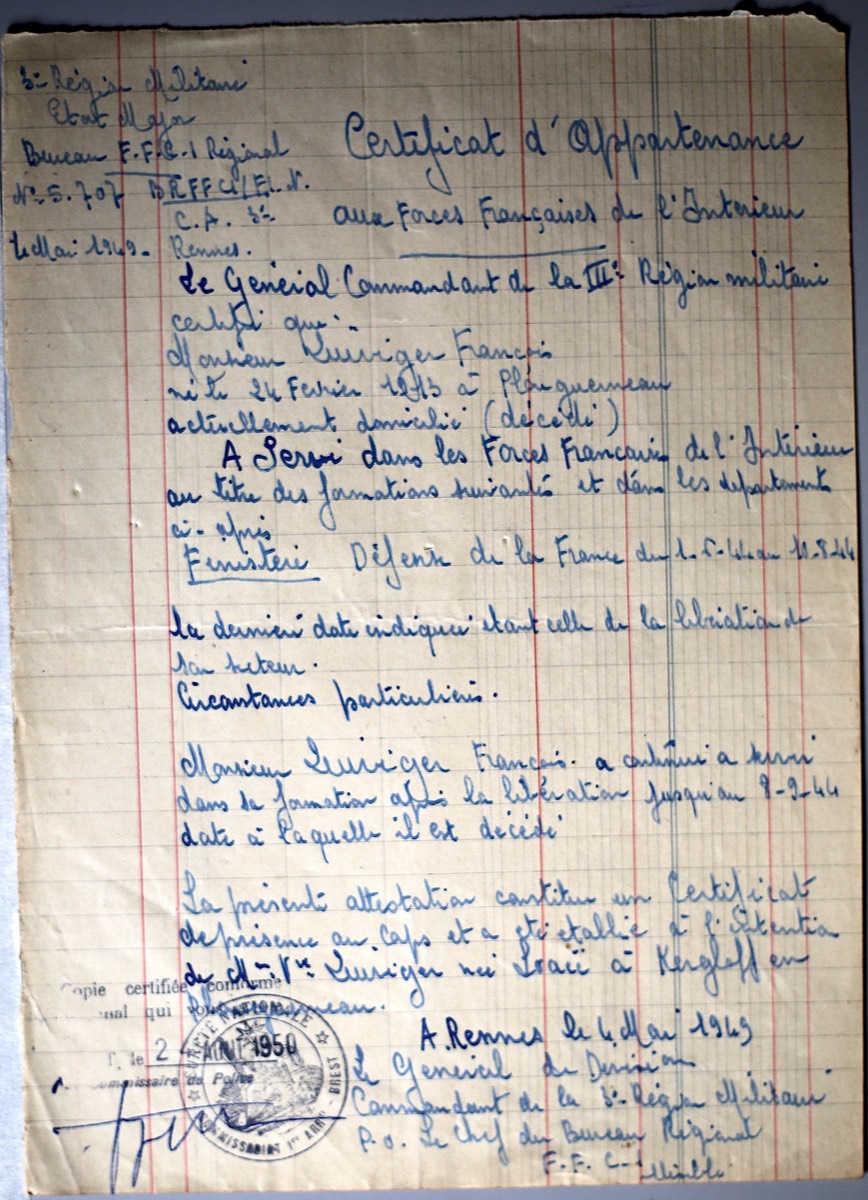 3e Région Militaire
Etat Major
Bureau F.F.C.I Régional
N° 5.707 BRFFCI/F.I.N.
C.A. 3e
4 Mai 1949. Rennes.
Certificat d'Appartenance
aux Forces Françaises de l'Interieur
Le Général Commandant de la IIIe Région militaire
certifie que :
Monsieur François
né le 24 Fevrier 1913 à Plouguerneau
actuellement domicilié (décédé)
A Servi dans les Forces Françaises de l'Intérieur
au titre des formations suivantes et dans les departements
ci-après
Finistère Défense de la France du au 10-8-44
la dernière date indiquée étant celle de la libération de
son secteur.
Circonstances particulières.
Monsieur François. a continué a servir
dans sa formation après la libération jusqu'au 8-9-44
date à laquelle il est décédé
La présente attestation constitue un Certificat
de présence au Corps et a été établie à l'intention
de Mme Vve née à en
Plouguerneau.
Copie certifiée conforme
qui
le 2 AOUT 1950
Commissaire de Police
SURETE NATIONALE
COMMISSARIAT 1er ARRt - BREST
A Rennes le 4 Mai 1949
Le General de Division
Commandant de la 3e Région Militaire
P.o. Le Chef du Bureau Régional
F.F.C.I